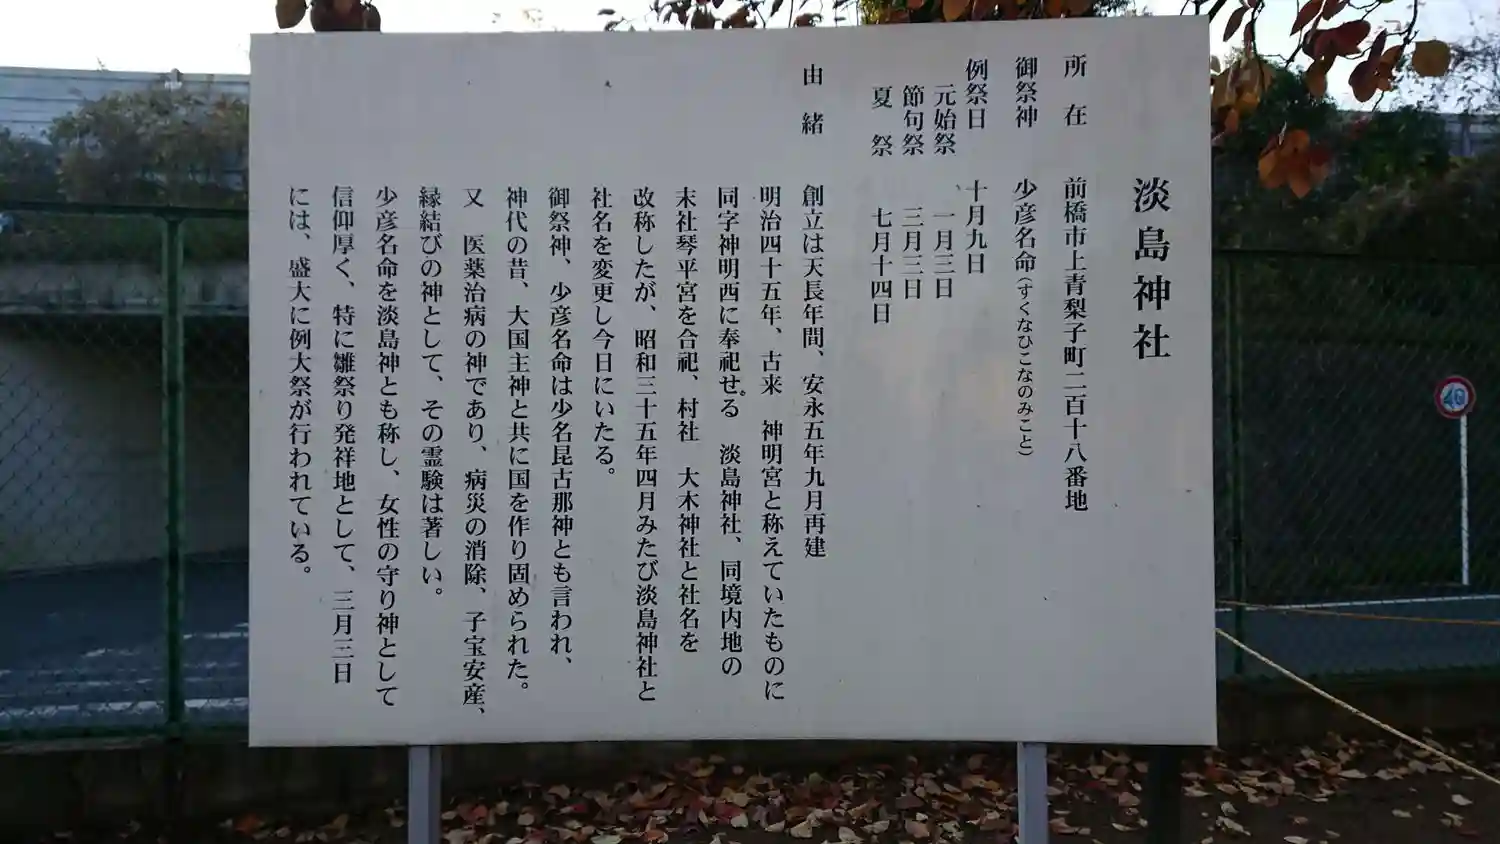 淡島神社
所在　前橋市上青梨子町二百十八番地
御祭神　少彦名命（すくなひこなのみこと）
例祭日　十月九日
元始祭　一月三日
節句祭　三月三日
夏祭　七月十四日
由緒　創立は天長年間、安永五年九月再建
明治四十五年、古来　神明宮と称えていたものに
同字神明西に奉祀せる　淡島神社、同境内地の
末社琴平宮を合祀、村社　大木神社と社名を
改称したが、昭和三十五年四月みたび淡島神社と
社名を変更し今日にいたる。
御祭神、少彦名命は少名昆古那神とも言われ、
神代の昔、大国主神と共に国を作り固められた。
又　医薬治病の神であり、病災の消除、子宝安産、
縁結びの神として、その霊験は著しい。
少彦名命を淡島神とも称し、女性の守り神として
信仰厚く、特に雛祭り発祥地として、三月三日
には、盛大に例大祭が行われている。
40